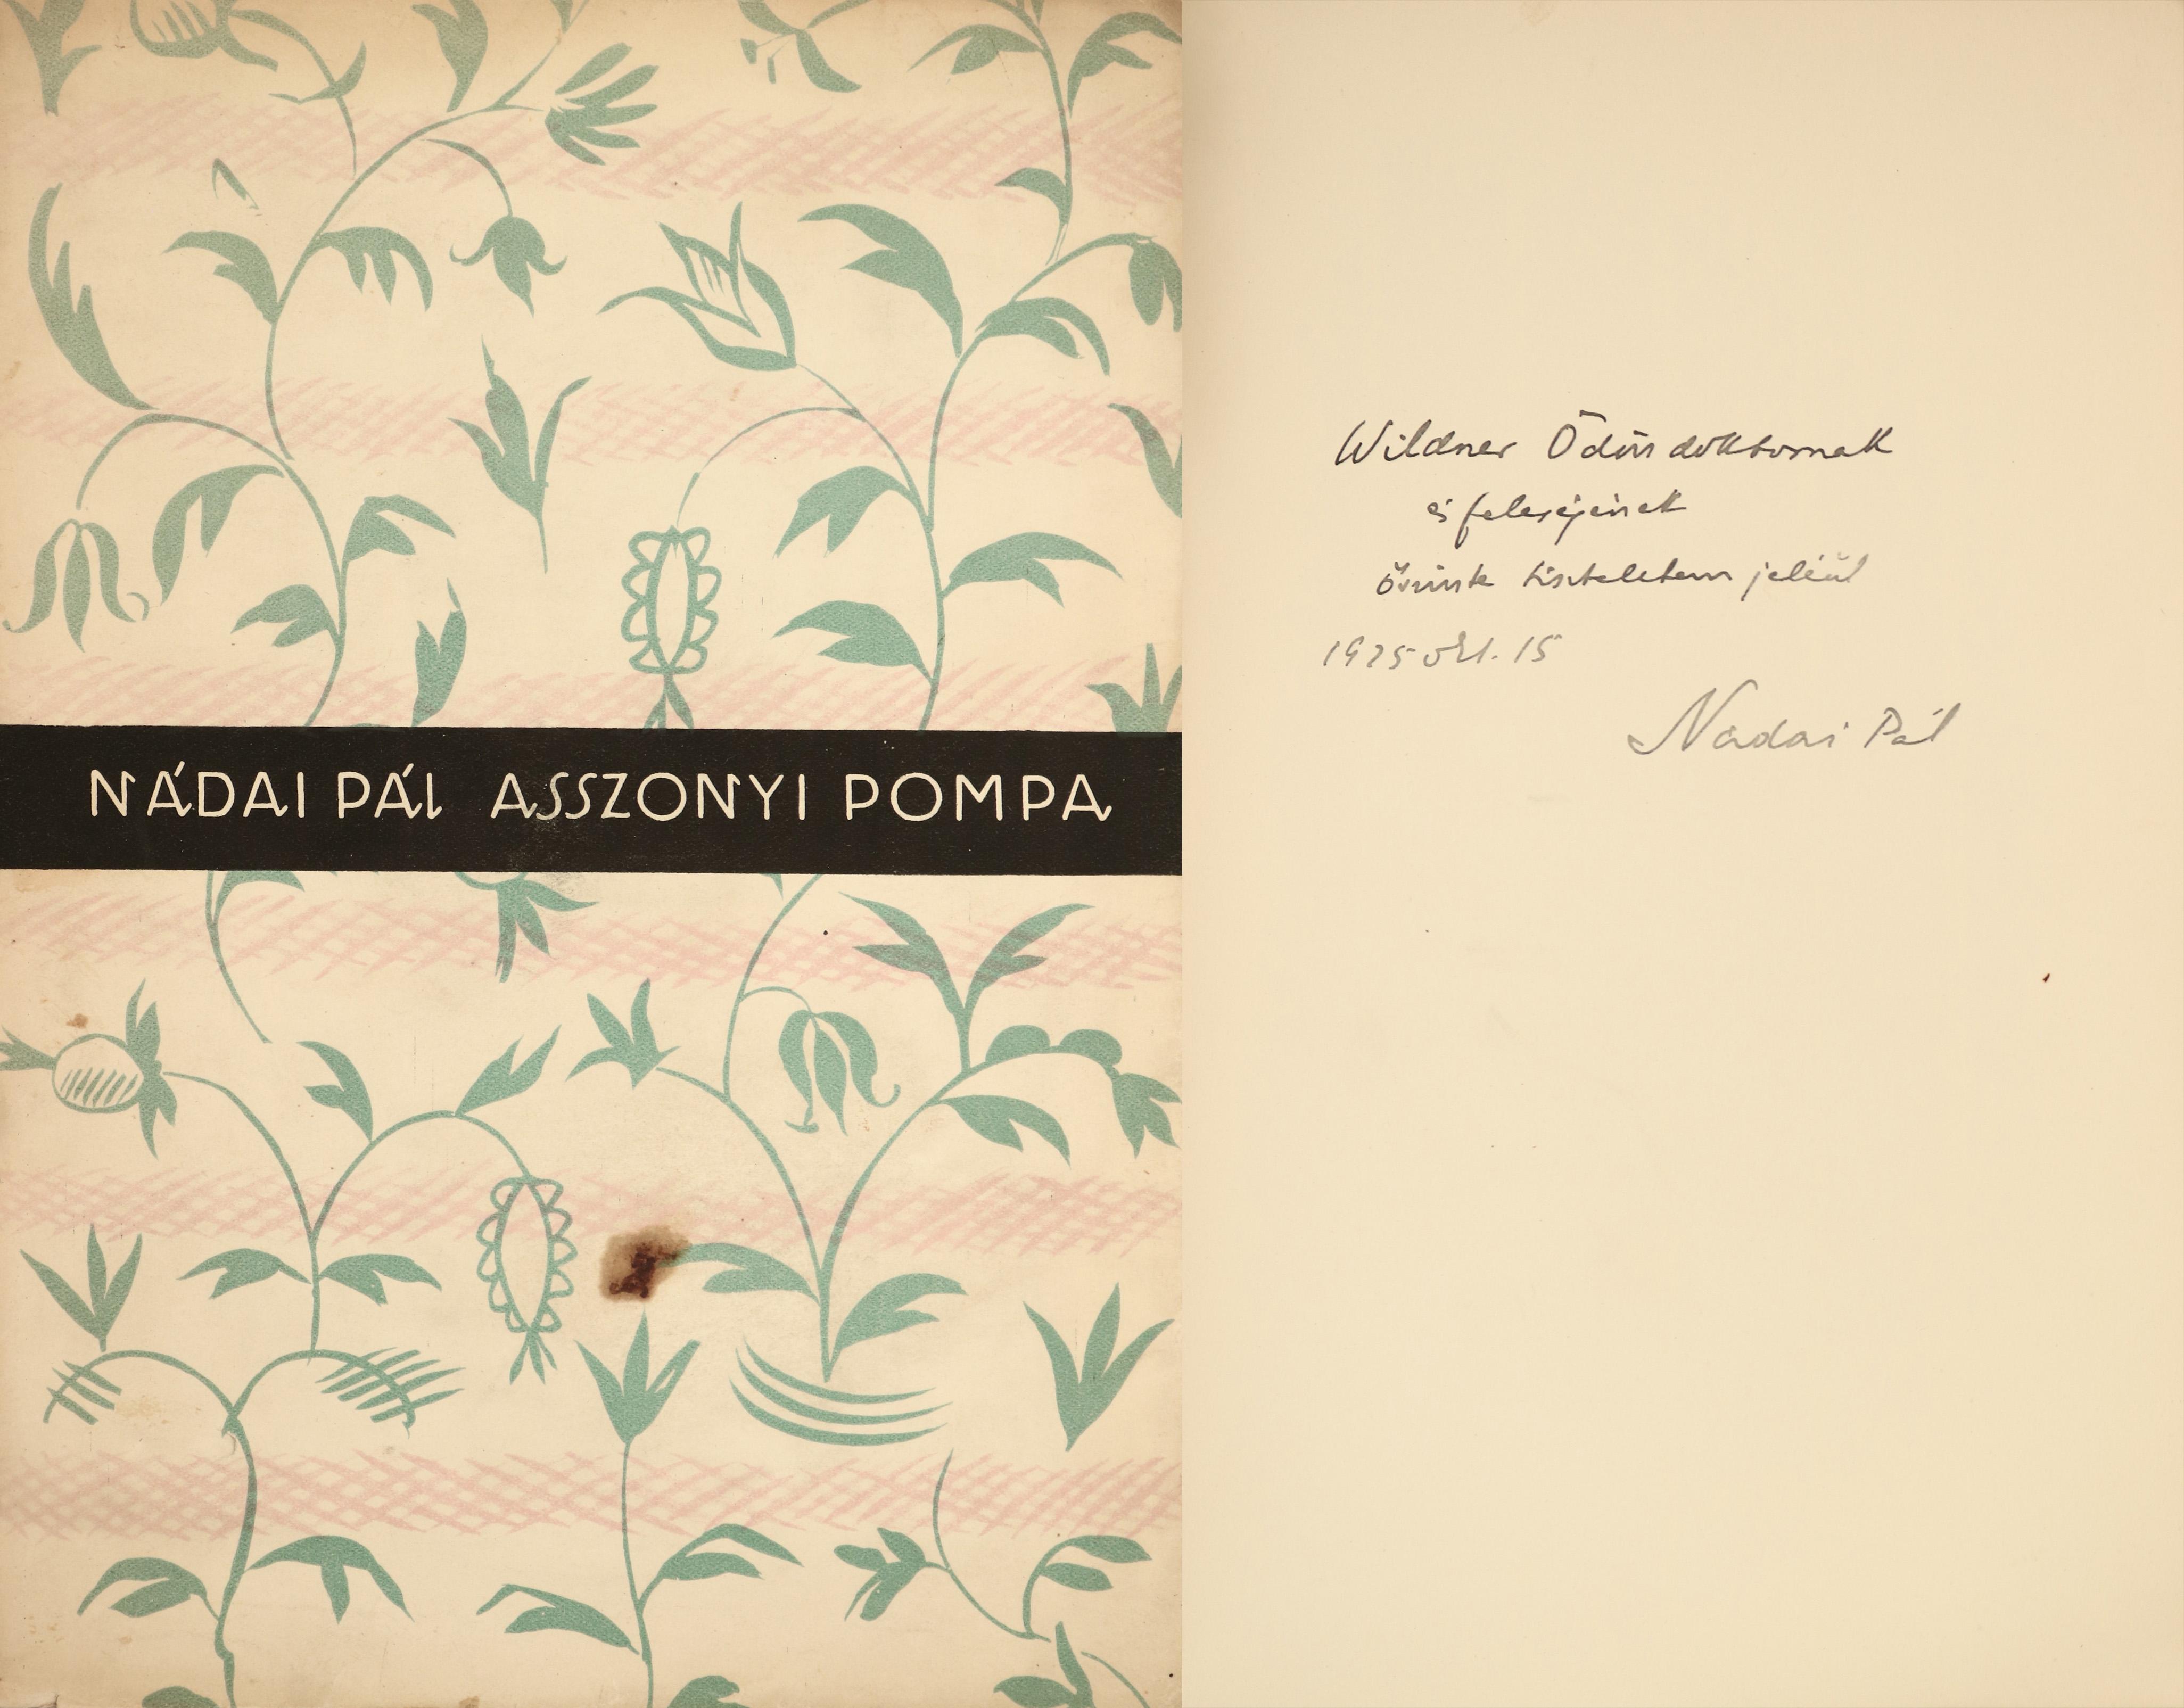 NÁDAI PÁL ASSZONYI POMPA
Wildner Ödön doktornak
és feleségének
őszinte tiszteletem jeléül
1925 okt. 15
Nádai Pál